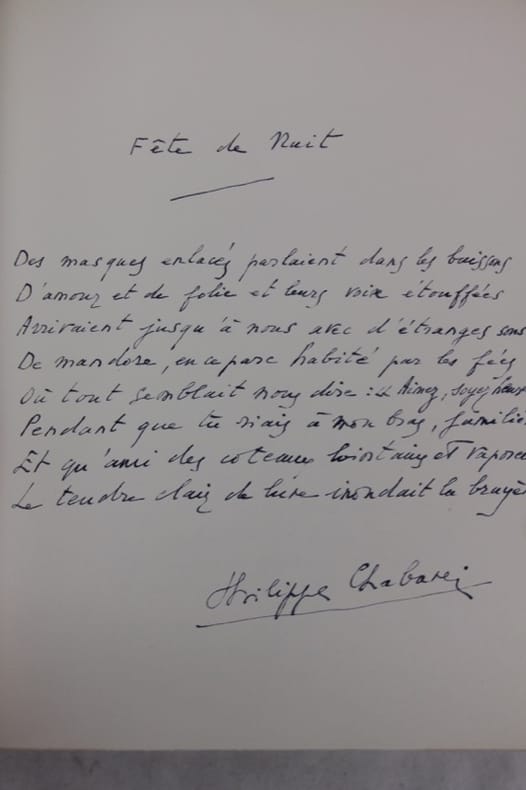 Fête de Nuit
Des masques enlacés parlaient dans les buissons
D'amour et de folie et leurs voix étouffées
Arrivaient jusqu'à nous avec d'étranges sons
De mandore, en ce parc habité par les fées
Où tout semblait nous dire : « Aimez, soyez
Pendant que tu riais à mon bras,
Et qu'ami des coteaux lointains et
Le tendre clair de lune inondait la
Philippe Chabaneix